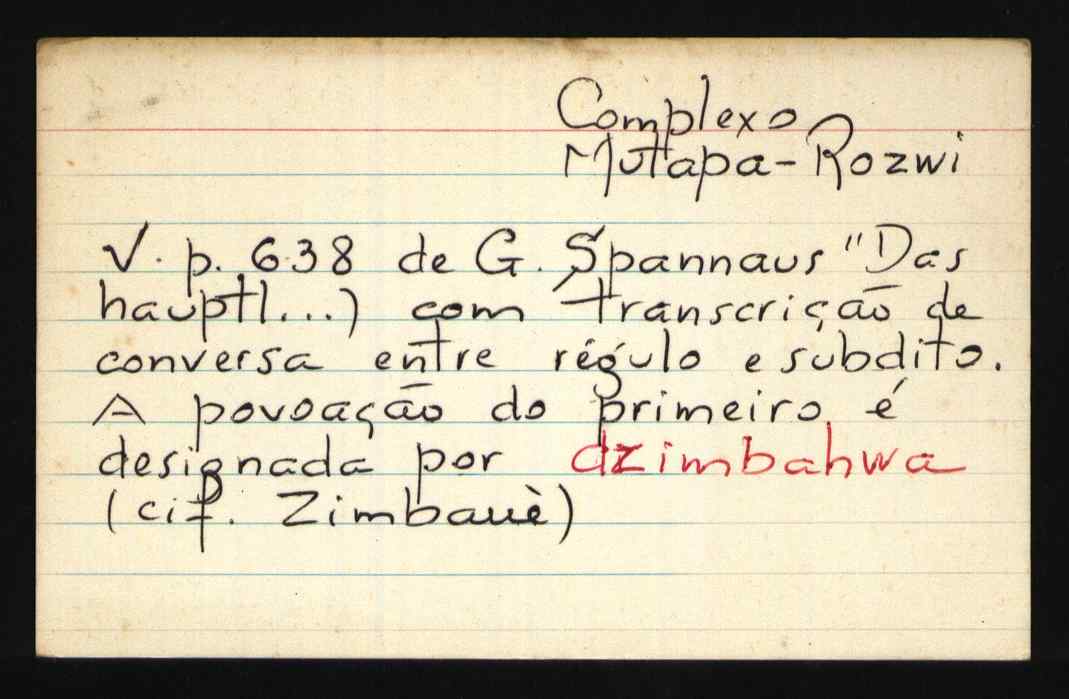 Complexo
Mutapa-Rozwi
V. p. 638 de G. Spannaus "Das
hauptl...) com transcrição de
conversa entre régulo e subdito.
A povoação do primeiro é
designada por dzimbahwa
(cif. Zimbauè)